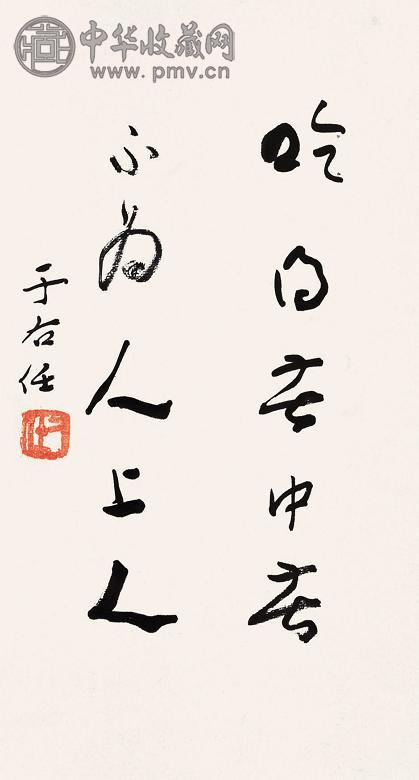 中华收藏网
www.pmv.cn
吃得苦中苦
不为人上人
于右任